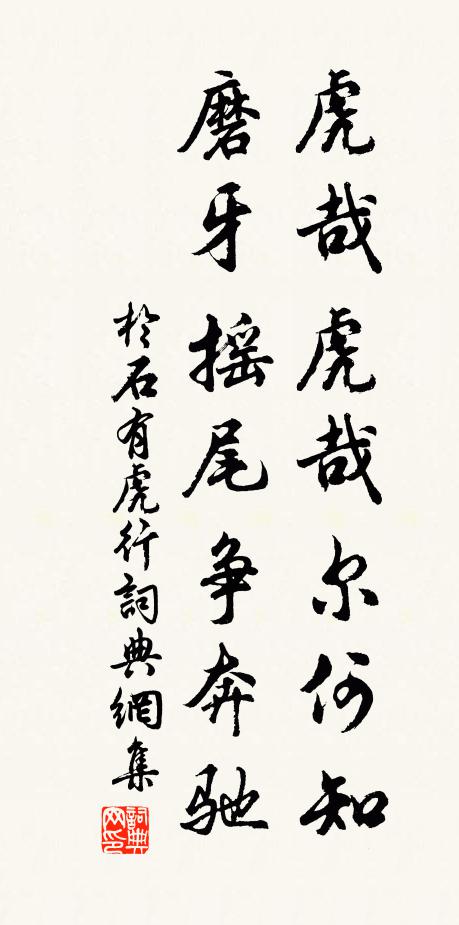 虎哉虎哉尔何知
磨牙摇尾争奔驰
於石有虎行詞典網集
詞典
网印